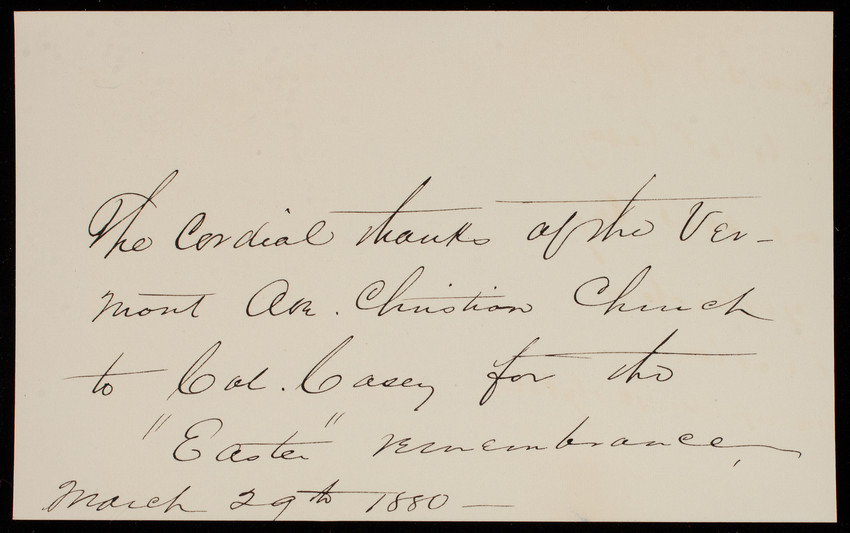 The Cordial thanks of the Ver-
mont Ave. Christian Church
to Col. Casey for the
"Easter" remembrance,
March 29th 1880 —